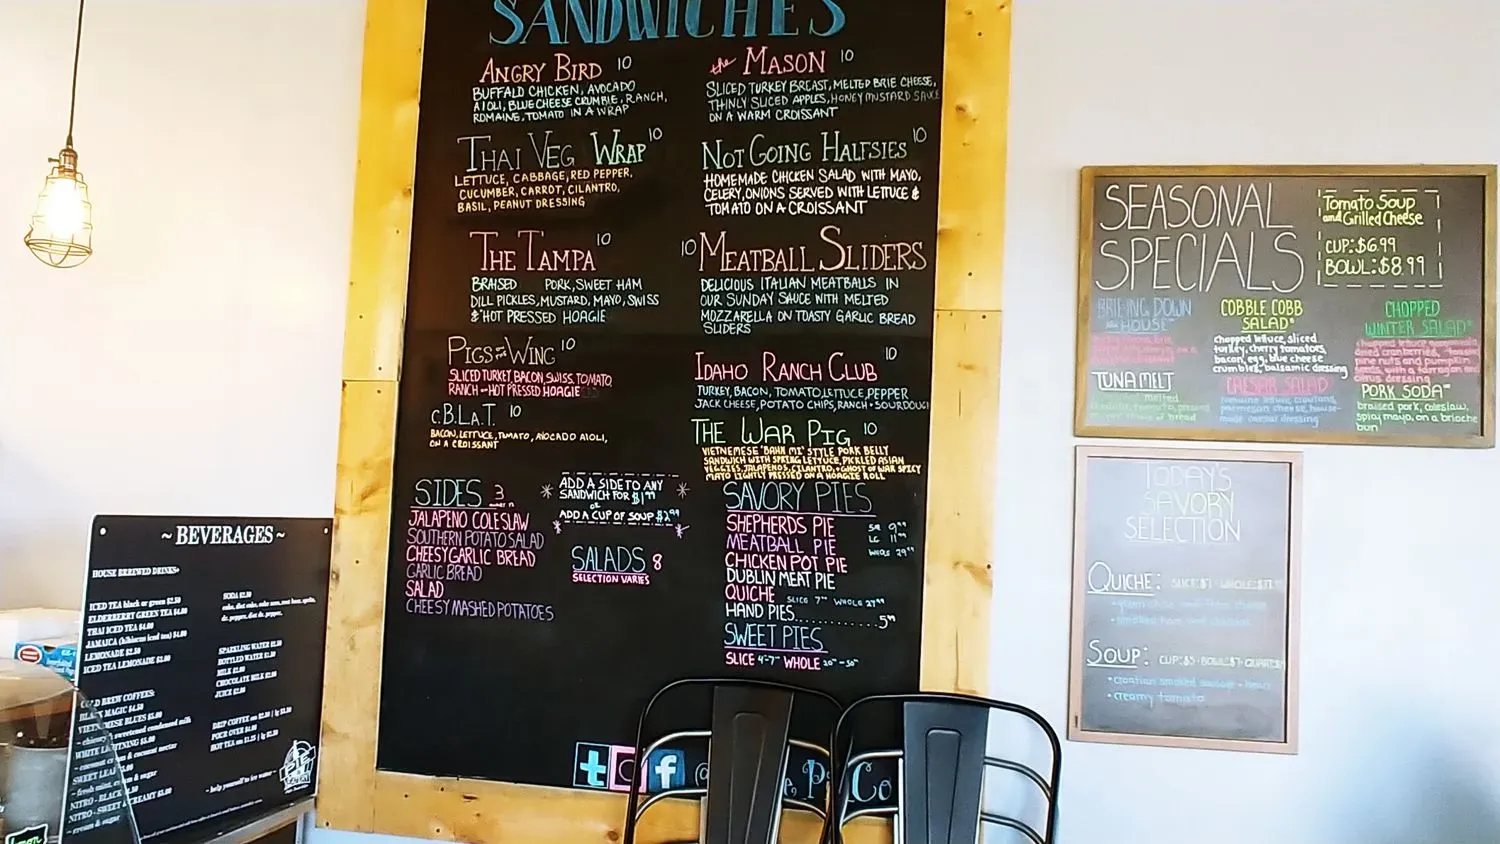 SANDWICHES
ANGRY BIRD 10
BUFFALO CHICKEN, AVOCADO
AIOLI, BLUE CHEESE CRUMBLE, RANCH,
ROMAINE, TOMATO IN A WRAP
THAI VEG WRAP 10
LETTUCE, CABBAGE, RED PEPPER,
CUCUMBER, CARROT, CILANTRO,
BASIL, PEANUT DRESSING
THE TAMPA 10
BRAISED PORK, SWEET HAM
DILL PICKLES, MUSTARD, MAYO, SWISS
& HOT PRESSED HOAGIE
PIGS ON THE WING 10
SLICED TURKEY, BACON, SWISS, TOMATO,
RANCH - HOT PRESSED HOAGIE
C.B.L.A.T. 10
BACON, LETTUCE, TOMATO, AVOCADO AIOLI,
ON A CROISSANT
the MASON 10
SLICED TURKEY BREAST, MELTED BRIE CHEESE,
THINLY SLICED APPLES, HONEY MUSTARD SAUCE
ON A WARM CROISSANT
NOT GOING HALFSIES 10
HOMEMADE CHICKEN SALAD WITH MAYO,
CELERY, ONIONS SERVED WITH LETTUCE &
TOMATO ON A CROISSANT
10 MEATBALL SLIDERS
DELICIOUS ITALIAN MEATBALLS IN
OUR SUNDAY SAUCE WITH MELTED
MOZZARELLA ON TOASTY GARLIC BREAD
SLIDERS
IDAHO RANCH CLUB 10
TURKEY, BACON, TOMATO, LETTUCE, PEPPER
JACK CHEESE, POTATO CHIPS, RANCH · SOURDOUGH
THE WAR PIG 10
VIETNEMESE "BAHN MI" STYLE PORK BELLY
SANDWICH WITH SPRING LETTUCE, PICKLED ASIAN
VEGGIES, JALAPENOS, CILANTRO, + GHOST OF WAR SPICY
MAYO LIGHTLY PRESSED ON A HOAGIE ROLL
SIDES 3
JALAPENO COLESLAW
SOUTHERN POTATO SALAD
CHEESY GARLIC BREAD
GARLIC BREAD
SALAD
CHEESY MASHED POTATOES
ADD A SIDE TO ANY
SANDWICH FOR $1.99
OR
ADD A CUP OF SOUP $2.99
SALADS 8
SELECTION VARIES
SAVORY PIES
SHEPHERDS PIE SM 9.99
MEATBALL PIE LG 11.99
CHICKEN POT PIE WHOLE 29.99
DUBLIN MEAT PIE
QUICHE SLICE 7.99 WHOLE 27.99
HAND PIES............5.99
SWEET PIES
SLICE 4-7 WHOLE 20 - 30
t f @
SEASONAL
SPECIALS
Tomato Soup
and Grilled Cheese
CUP: $6.99
BOWL: $8.99
BRIE-ING DOWN
the HOUSE
TUNA MELT
melted
COBBLE COBB
SALAD
chopped lettuce, sliced
turkey, cherry tomatoes,
bacon, egg, blue cheese
crumbles, balsamic dressing
CAESAR SALAD
romaine lettuce, croutons,
parmesan cheese, house-
made caesar dressing
CHOPPED
WINTER SALAD
chopped lettuce
dried cranberries,
pine nuts and pumpkin
seeds, with a tarragon and
citrus dressing
PORK SODA
braised pork, coleslaw,
spicy mayo, on a brioche
bun
TODAY'S
SAVORY
SELECTION
QUICHE: SLICE: $7 WHOLE:
SOUP: CUP: $5 · BOWL: $7 · QUART:
· croatian smoked sausage + bean
· creamy tomato
~ BEVERAGES ~
HOUSE BREWED DRINKS
ICED TEA black or green $2.50
ELDERBERRY GREEN TEA $4.00
THAI ICED TEA $4.00
JAMAICA (hibiscus iced tea) $4.00
LEMONADE $2.50
ICED TEA LEMONADE $3.00
COLD BREW COFFEES:
BLACK MAGIC $4.50
VIETNAMESE BLUES $5.00
sweetened condensed milk
WHITE LIGHTNING $5.00
& coconut nectar
SWEET LEAF
NITRO - BLACK
NITRO - SWEET & CREAMY $5.00
cream & sugar
SODA $2.50
SPARKLING WATER
BOTTLED WATER
MILK $2.00
CHOCOLATE MILK $2.00
JUICE $2.00
DRIP COFFEE
POUR OVER $4.00
HOT TEA
~ help yourself to ice water ~